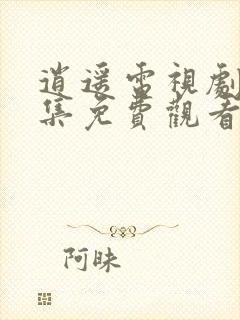 逍遥雷視劇
集免費觀看
阿昧